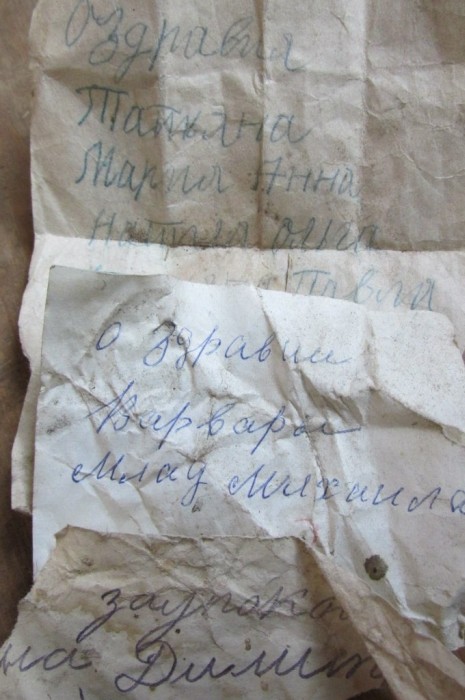 О Здравия
Татьяна
Мария Анна
Ольга
Павла
о здравии
Варвары
млад Михаила
заупоко
на Димит